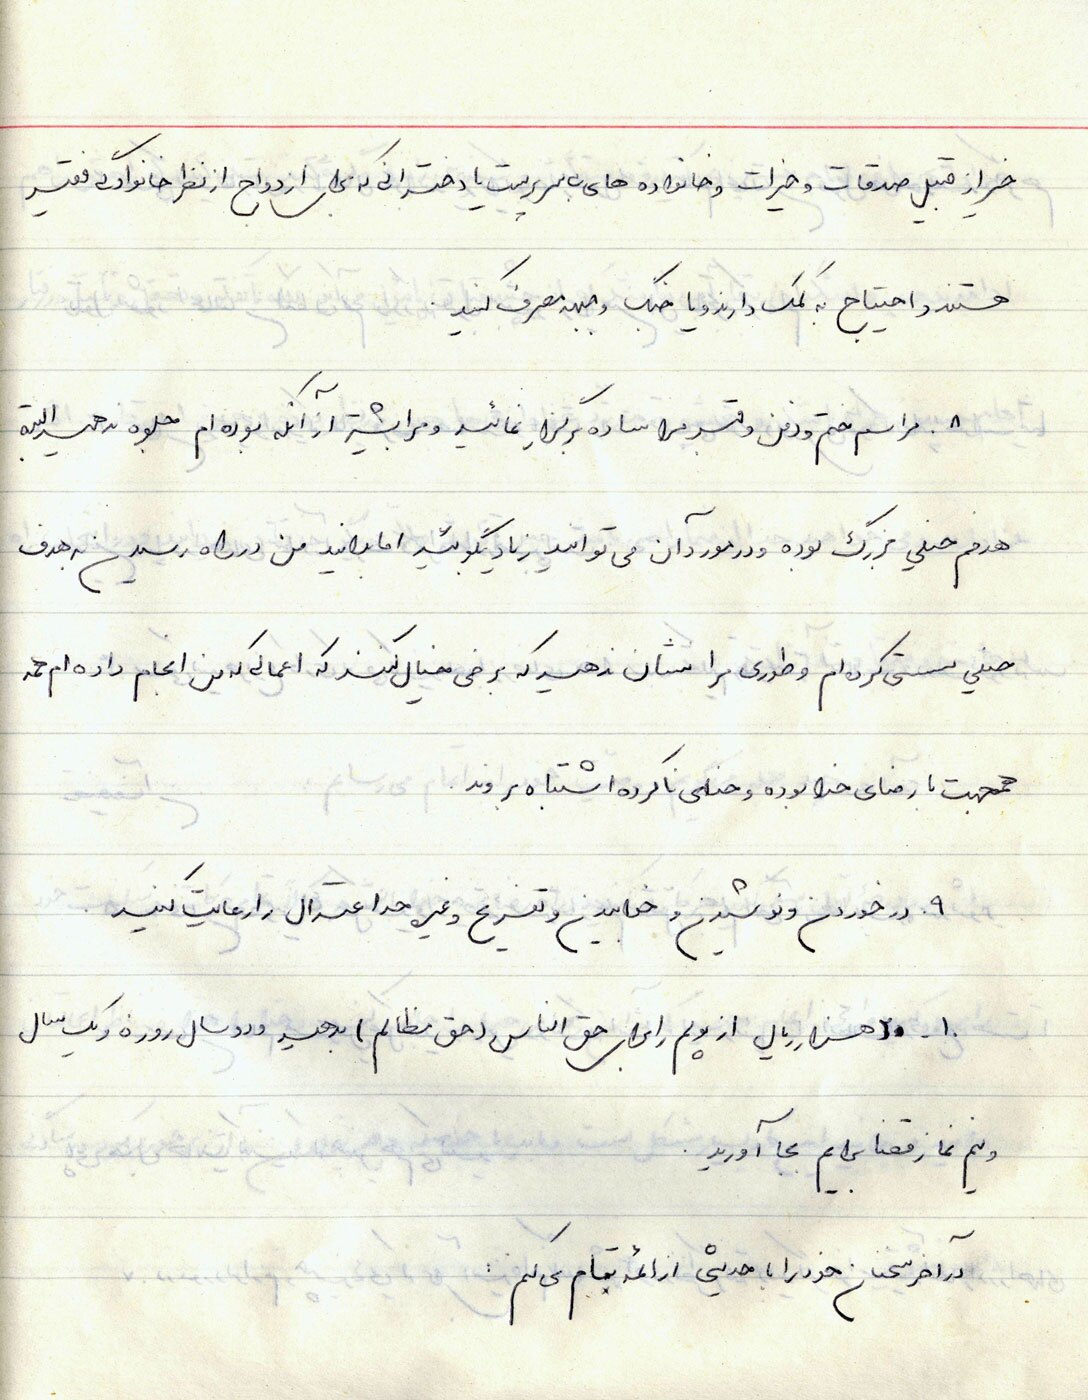 خیر از قبیل صدقات و خیرات و خانواده های بی سرپرست یا دخترانی که برای ازدواج از نظر خانوادگی فقیر
هستند و احتیاج به کمک دارند و یا جنگ و جبهه مصرف کنید .
۸. مراسم ختم و دفن و قبر مرا ساده برگزار نمائید و مرا بیشتر از آنکه بوده ام جلوه ندهید البته
هدفم خیلی بزرگ بوده و در مورد آن می توانید زیاد بگوئید اما بدانید من در راه رسیدن به هدف
خیلی سستی کرده ام و طوری مرا نشان ندهید که برخی خیال کنند که اعمالی که من انجام داده ام همه
همجهت با رضای خدا بوده و خدای ناکرده اشتباه بروند .
۹. در خوردن و نوشیدن و خوابیدن و تفریح و غیره حد اعتدال را رعایت کنید .
۱۰ـ ۲۰ هزار ریال از پولم را برای حق الناس (حق مظالم) بدهید و دو سال روزه و یک سال
و نیم نماز قضا برایم بجا آورید .
در آخر سخنان خود را با حدیثی از ائمه تمام می کنم :